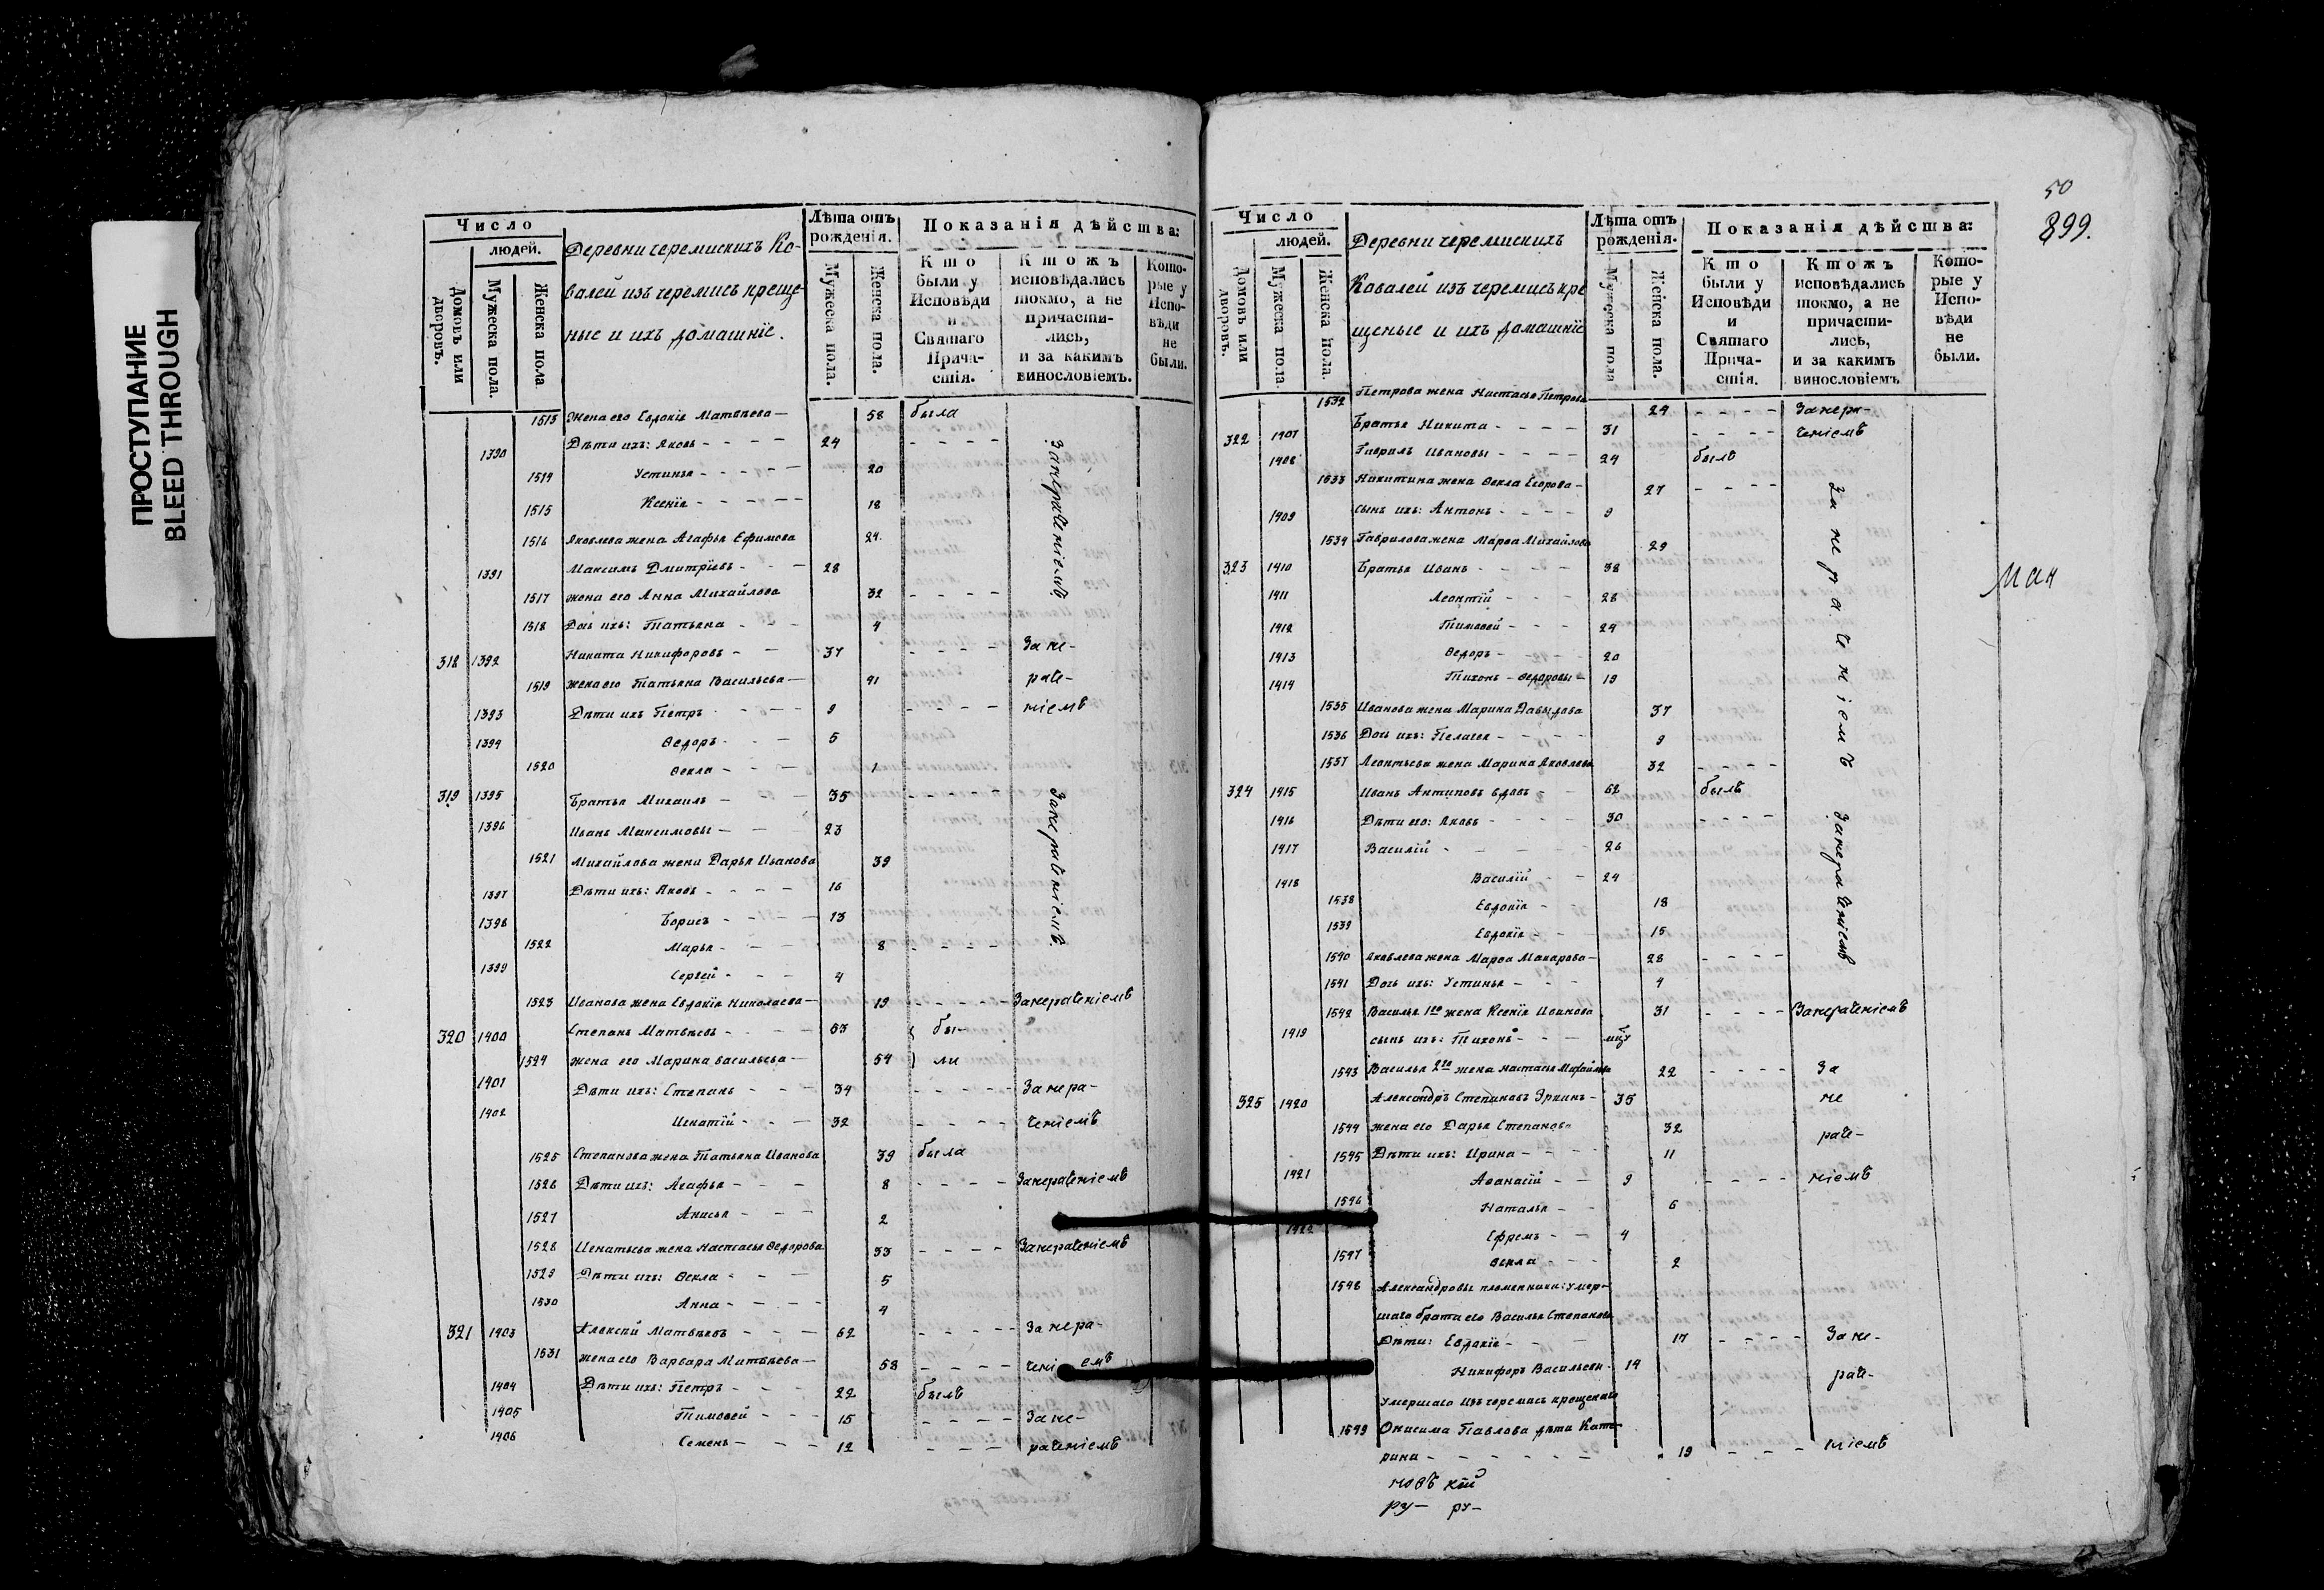 ПРОСТУПАНИЕ
BLEED THROUGH
Число
людей.
Домовъ или дворовъ.
Мужеска пола.
Женска пола
Деревни черемискихъ Ко-
валей изъ черемисъ креще-
ные и ихъ домашніе.
Лѣта отъ рожденія.
Мужеска пола.
Женска пола.
Показанія дѣйства:
Кто были у Исповѣди и Святаго Прича-стія.
Ктожъ исповѣдались токмо, а не причасти-лись, и за какимъ винословіемъ.
Кото-рые у Испо-вѣди не были.
1513 Жена его Евдокія Матвѣева — 58 была
1390 Дѣти ихъ: Яковъ - - - - 24 - - - -
1514 Устинья - - - - 20
1515 Ксенія - - - - 18
1516 Яковлева жена Агафья Ефимова 24
1391 Максимъ Дмитріевъ - - 28
1517 жена его Анна Михайлова 32 - - - -
1518 Дочь ихъ: Татьяна - - - 4
Занераченіемъ
318 1392 Никита Никифоровъ - - 37 - - - - За не-
1519 жена его Татьяна Васильева — 41 раче-
1393 Дѣти ихъ Петръ - - - - 9 - - - - ніемъ
1394 Ѳедоръ - - - 5
1520 Ѳекла - - - 1
319 1395 Братья Михаилъ - - - 35 - - - - -
1396 Иванъ Максимовы - - - 23
1521 Михайлова жена Дарья Иванова 39
1397 Дѣти ихъ: Яковъ - - - - 16
1398 Борисъ - - - - 13
1522 Марья - - - 8 - - - -
1399 Сергей - - - 4
Занераченіемъ.
1523 Иванова жена Евдокія Николаева — 19 - - - - - Занераченіемъ
320 1400 Степанъ Матвѣевъ - - - - 63 бы-
1524 жена его Марина Васильева — 54 ли
1401 Дѣти ихъ: Степанъ - - - 34 - - - - - Занера-
1402 Игнатій - - - 32 - - - - ченіемъ
1525 Степанова жена Татьяна Иванова 39 была
1526 Дѣти ихъ: Агафья - - - - 8 - - - - Занераченіемъ
1527 Анисья - - - 2
1528 Игнатьева жена Настасья Ѳедорова 33 - - - - Занераченіемъ
1529 Дѣти ихъ: Ѳекла - - - 5
1530 Анна - - - - 4
321 1403 Алексѣй Матвѣевъ - - - 62 - - - - - Занера-
1531 жена его Варвара Матвѣева — 58 - - - - ченіемъ
1404 Дѣти ихъ: Петръ - - - 22 былъ
1405 Тимоѳей - - - 15 - - - - - Зане-
1406 Семенъ - - - - 12 - - - - раченіемъ
50
899.
Число
людей.
Домовъ или дворовъ.
Мужеска пола.
Женска пола.
Деревни черемискихъ
Ковалей изъ черемисъ кре
щеные и ихъ домашніе
Лѣта отъ рожденія.
Мужеска пола
Женска пола.
Показанія дѣйства:
Кто были у Исповѣди и Святаго Прича-стія.
Ктожъ исповѣдались токмо, а не причасти-лись, и за какимъ винословіемъ
Кото-рые у Испо-вѣди не были.
1532 Петрова жена Настасья Петрова 24 - - - - Занера-
322 1907 Братья Никита - - - - 31 - - - - ченіемъ
1908 Гаврилъ Ивановы - - - - 24 былъ
1533 Никитина жена Ѳекла Егорова - 27 - - - -
1909 сынъ ихъ: Антонъ - - - - 9
1534 Гаврилова жена Марѳа Михайлова 29
323 1910 Братья Иванъ - - - - 38
1911 Леонтій - - - 28
1912 Тимоѳей - - - 24
1913 Ѳедоръ - - - 20
1914 Тихонъ - Ѳедоровы - 19
1535 Иванова жена Марина Давыдова 37
1536 Дочь ихъ: Пелагея - - - - 9
1537 Леонтьева жена Марина Яковлева 32 - - - -
Занераченіемъ
Ман
324 1915 Иванъ Антиповъ вдовъ - - 62 былъ
1916 Дѣти его: Яковъ - - - - 30 - - - -
1917 Василій - - - - - 26
1918 Василій - - 24
1538 Евдокія - - 18
1539 Евдокія - - - 15
1540 Яковлева жена Марѳа Макарова - 28 - - - -
1541 Дочь ихъ: Устинья - - - 4
Занераченіемъ
1542 Василья 1го жена Ксенія Иванова 31 - - - - Занераченіемъ
1919 сынъ ихъ: Тихонъ - - -
1543 Василья 2го жена Настасья Михайлова 22 - - - - За
325 1920 Александръ Степановъ - 35 не
1544 жена его Дарья Степанова 32 раче-
1545 Дѣти ихъ: Ирина - - - - 11
1921 Аѳанасій - - 9 - - - - ніемъ
1546 Наталья - - 6
1922 Ефремъ - - 4
1547 Ѳекла - - - 2
1548 Александровы племянники: умер-
шаго брата его Василья Степанова
Дѣти: Евдокія - - 17 - - - - За не-
Никифоръ Васильевы - 14 раче-
Умершаго изъ черемисъ крещенаго
1549 Онисима Павлова дѣти Кате-
рина - - - - - - 19 - - - - ніемъ
новъ кій
ру- ру-